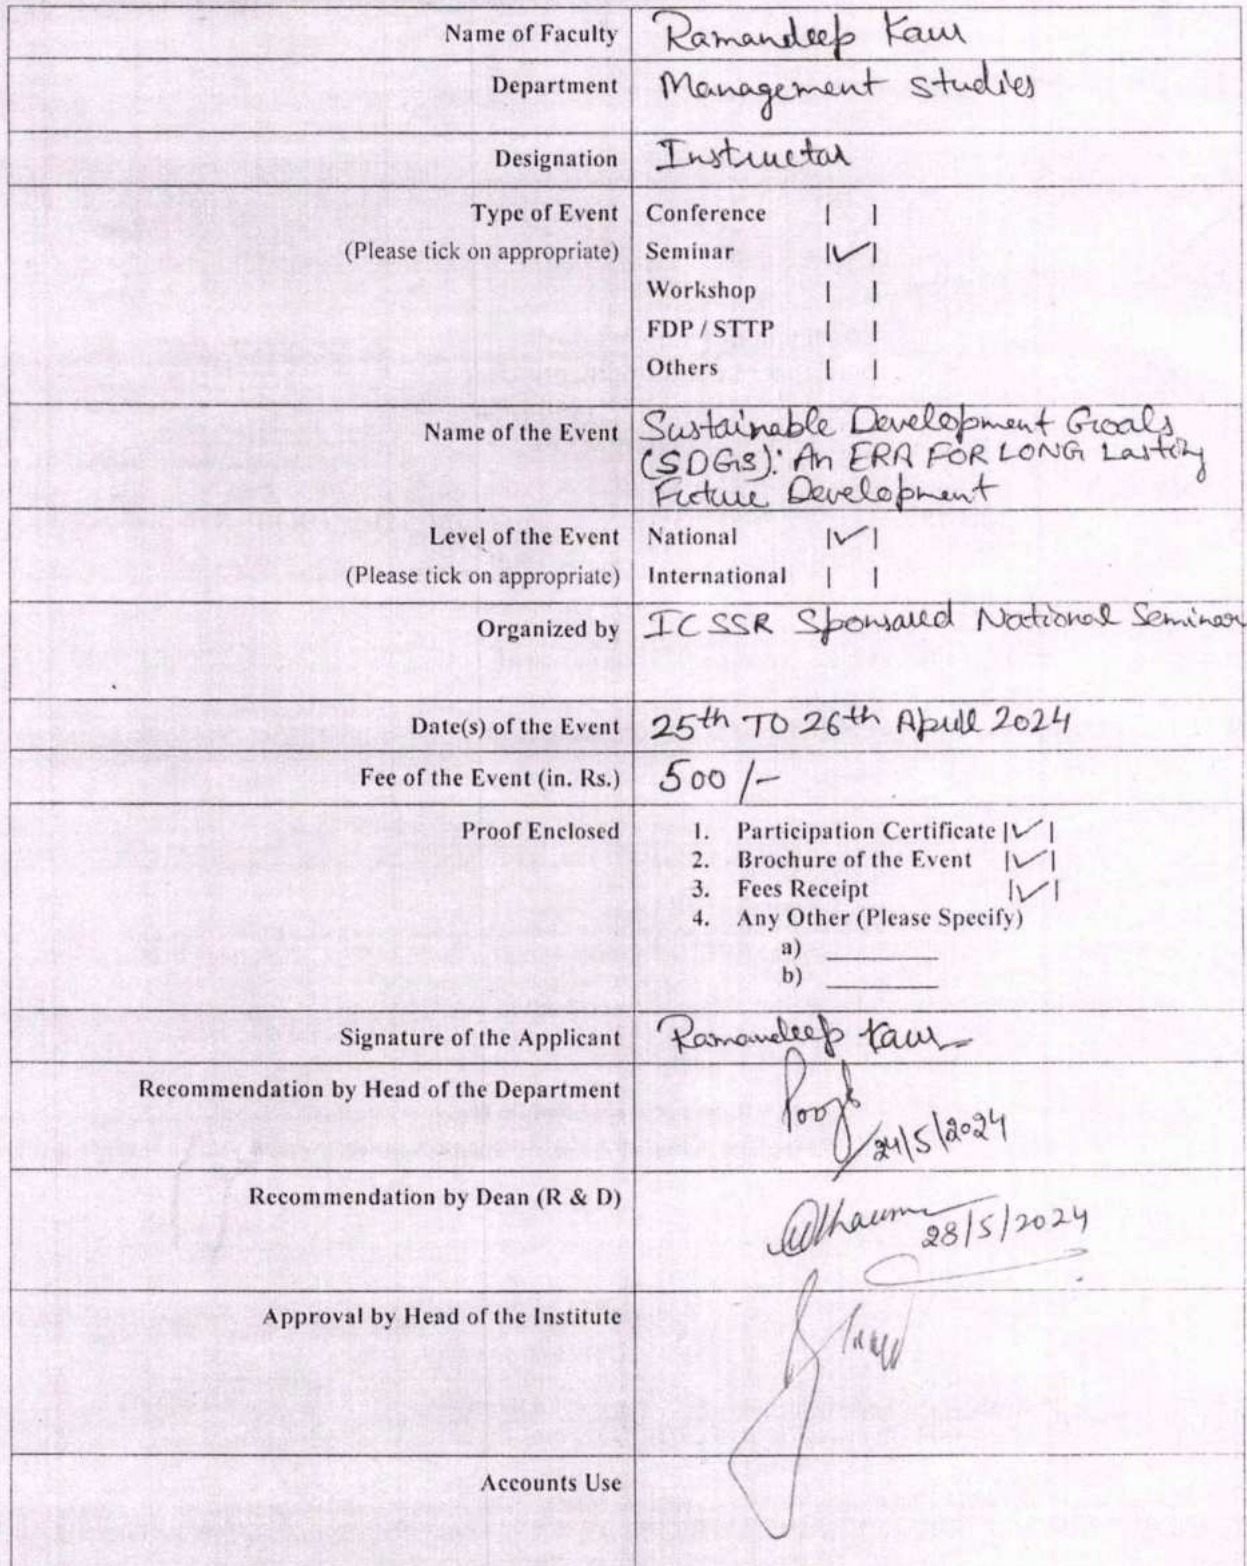 Name of Faculty Ramandeep Kaur
Department Management studies
Designation Instructor
Type of Event Conference | |
(Please tick on appropriate) Seminar |✓|
Workshop | |
FDP / STTP | |
Others | |
Name of the Event Sustainable Development Goals
(SDGs): An ERA FOR LONG Lasting
Future Development
Level of the Event National |✓|
(Please tick on appropriate) International | |
Organized by ICSSR Sponsored National Seminar
Date(s) of the Event 25th TO 26th April 2024
Fee of the Event (in. Rs.) 500/-
Proof Enclosed 1. Participation Certificate |✓|
2. Brochure of the Event |✓|
3. Fees Receipt |✓|
4. Any Other (Please Specify)
a) ________
b) ________
Signature of the Applicant Ramandeep Kaur
Recommendation by Head of the Department
24/5/2024
Recommendation by Dean (R & D)
28/5/2024
Approval by Head of the Institute
Accounts Use